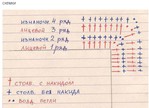 СХЕМА
ИЗНАНОЧН. 4 РЯД
ЛИЦЕВОЙ 3 РЯД
ИЗНАНОЧН 2 РЯД
ЛИЦЕВОЙ 1 РЯД
СТОЛБ. С НАКИДОМ
СТОЛБ. БЕЗ НАКИДА
ВОЗД. ПЕТЛИ